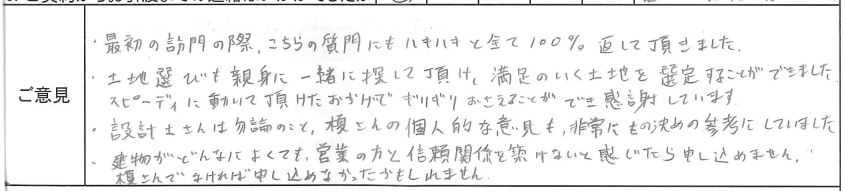 ご意見
・最初の訪問の際、こちらの質問にもハキハキと全て100%返して頂きました。
・土地選びも親身に一緒に探して頂け、満足のいく土地を選定することができました。
スピーディに動いて頂けたおかげでギリギリおさえることができ感謝しています。
・設計士さんは勿論のこと、榎さんの個人的な意見も、非常にもの決めの参考にしていました
・建物がどんなによくても、営業の方と信頼関係を築けないと感じたら申し込めません。
榎さんでなければ申し込めなかったかもしれません。